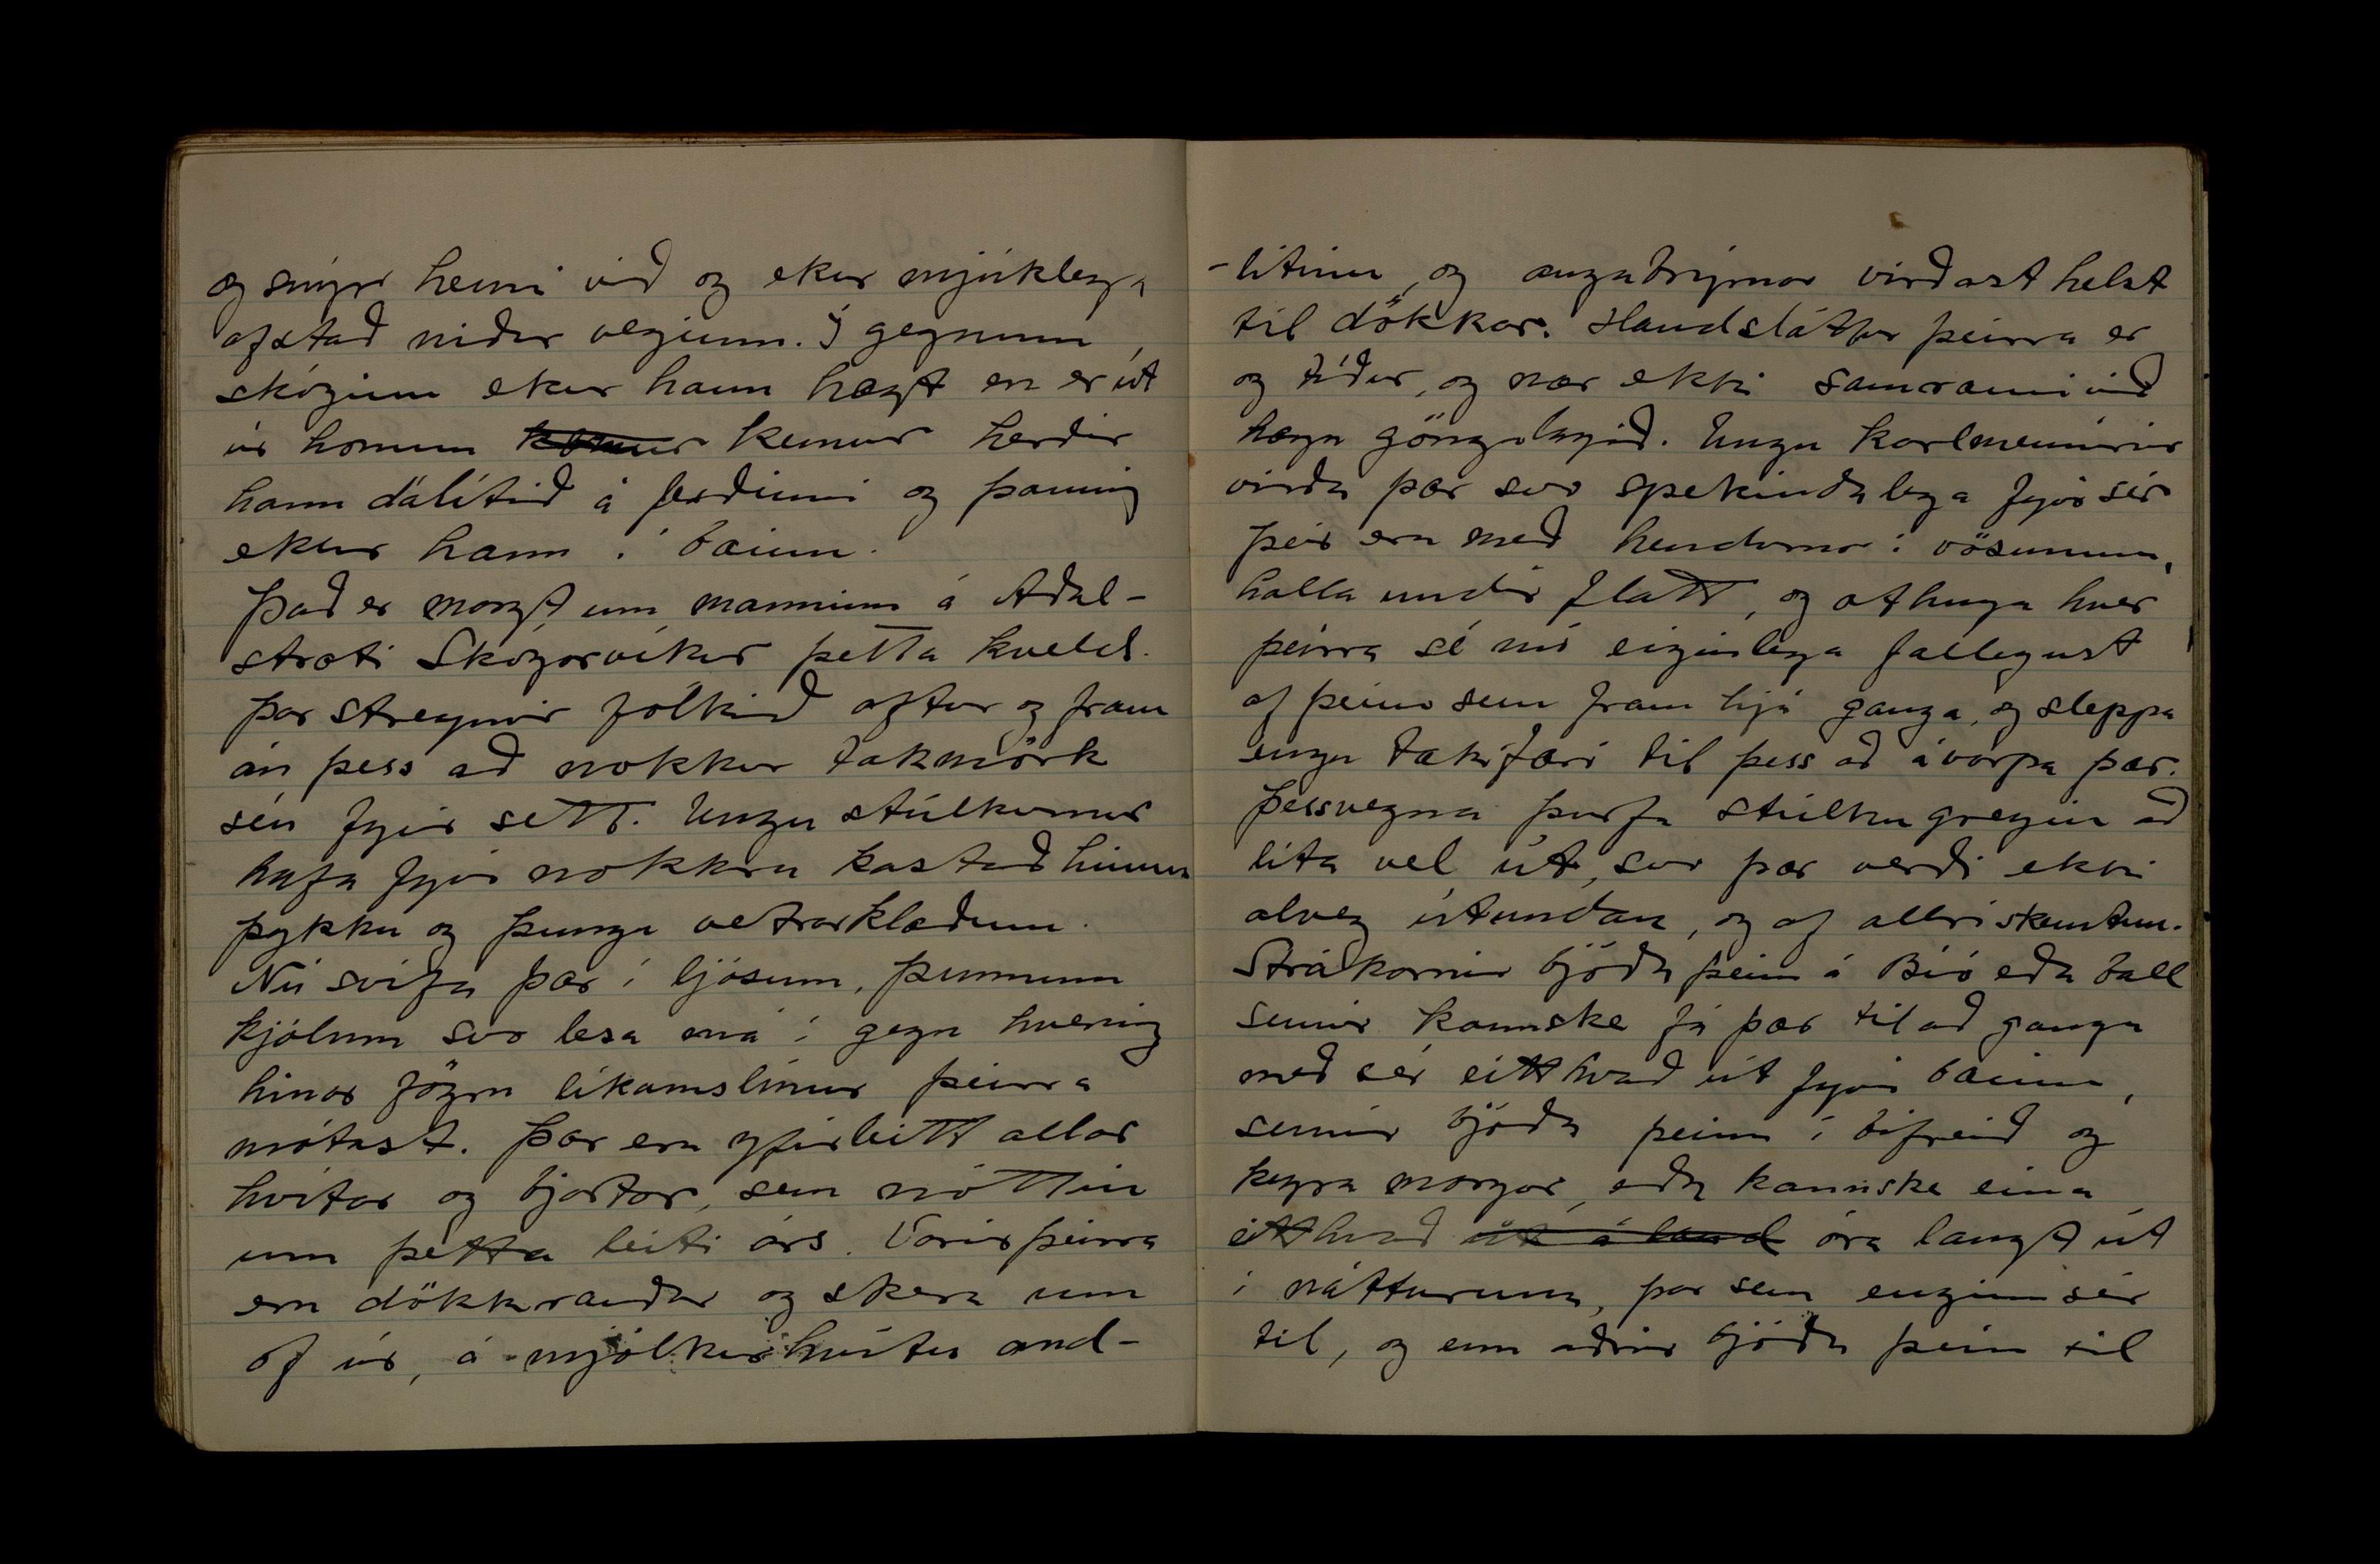 og snýr henni við og ekur mjúklega
afstað niður veginn. Í gegnum
skóginn ekur hann hægt en er út
úr honum kemur kemur herðir
hann dálítið á ferðinni og þannig
ekur hann í bæinn.
Það er margt um manninn á Aðal-
stræti Skógarvíkur þetta kveld.
Þar streymir fólkið aftur og fram
án þess að nokkur takmörk
séu fyrir sett. Ungu stúlkurnar
hafa fyrir nokkru kastað hinum
þykku og þungu vetrarklæðum.
Nú svífa þær í ljósum, þunnum
kjólum svo lesa má í gegn hvernig
hinar fögru líkamslínur þeirra
mótast. Þær eru yfirleitt allar
hvítar og bjartar, sem nóttin
um þetta leiti árs. Varir þeirra
eru dökkrauðar og skera um
of úr, á mjólkurhvítu and-
-litinu, og augabrýrnar virðast helst
til dökkar. Handsláttur þeirra er
og tíður, og nær ekki samræmi við
hæga göngulagið. Ungu karlmennirnir
virða þær svo spekindslega fyrir sér
þeir eru með hendurnar í vösunum,
halla undir flatt, og athuga hver
þeirra sé nú eiginlega fallegust
af þeim sem fram hjá ganga, og sleppa
engu tækifæri til þess að ávarpa þær.
Þessvegna þurfa stúlkugreyin að
líta vel út, svo þær verði ekki
alveg útundan, og af allri skemtun.
Strákarnir bjóða þeim á Bíó eða ball
sumir kannske fá þær til að ganga
með sér eitthvað út fyrir bæinn,
sumir bjóða þeim í bifreið og
keyra margar, eða kannske eina
eitthvað út á land óra langt út
í náttúruna, þar sem enginn sér
til, og enn aðrir bjóða þeim til